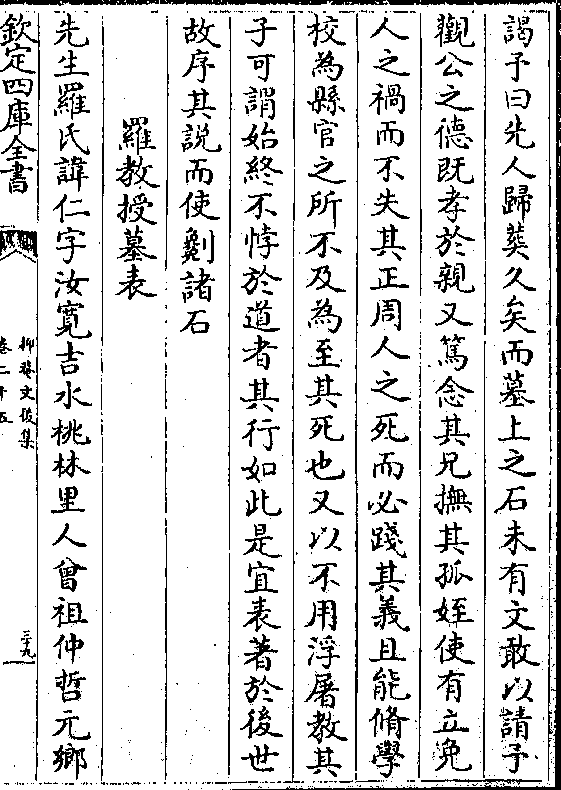 謁予曰先人歸葬久矣而墓上之石未有文敢以請予
觀公之德既孝於親又篤念其兄撫其孤姪使有立免
人之禍而不失其正周人之死而必踐其義且能脩學
校為縣官之所不及為至其死也又以不用浮屠教其
子可謂始終不悖於道者其行如此是宜表著於後世
故序其說而使劖諸石
羅教授墓表
先生羅氏諱仁字汝寛吉水桃林里人曾祖仲哲元鄉
欽定四庫全書
抑菴文後集
卷二十五
三十九